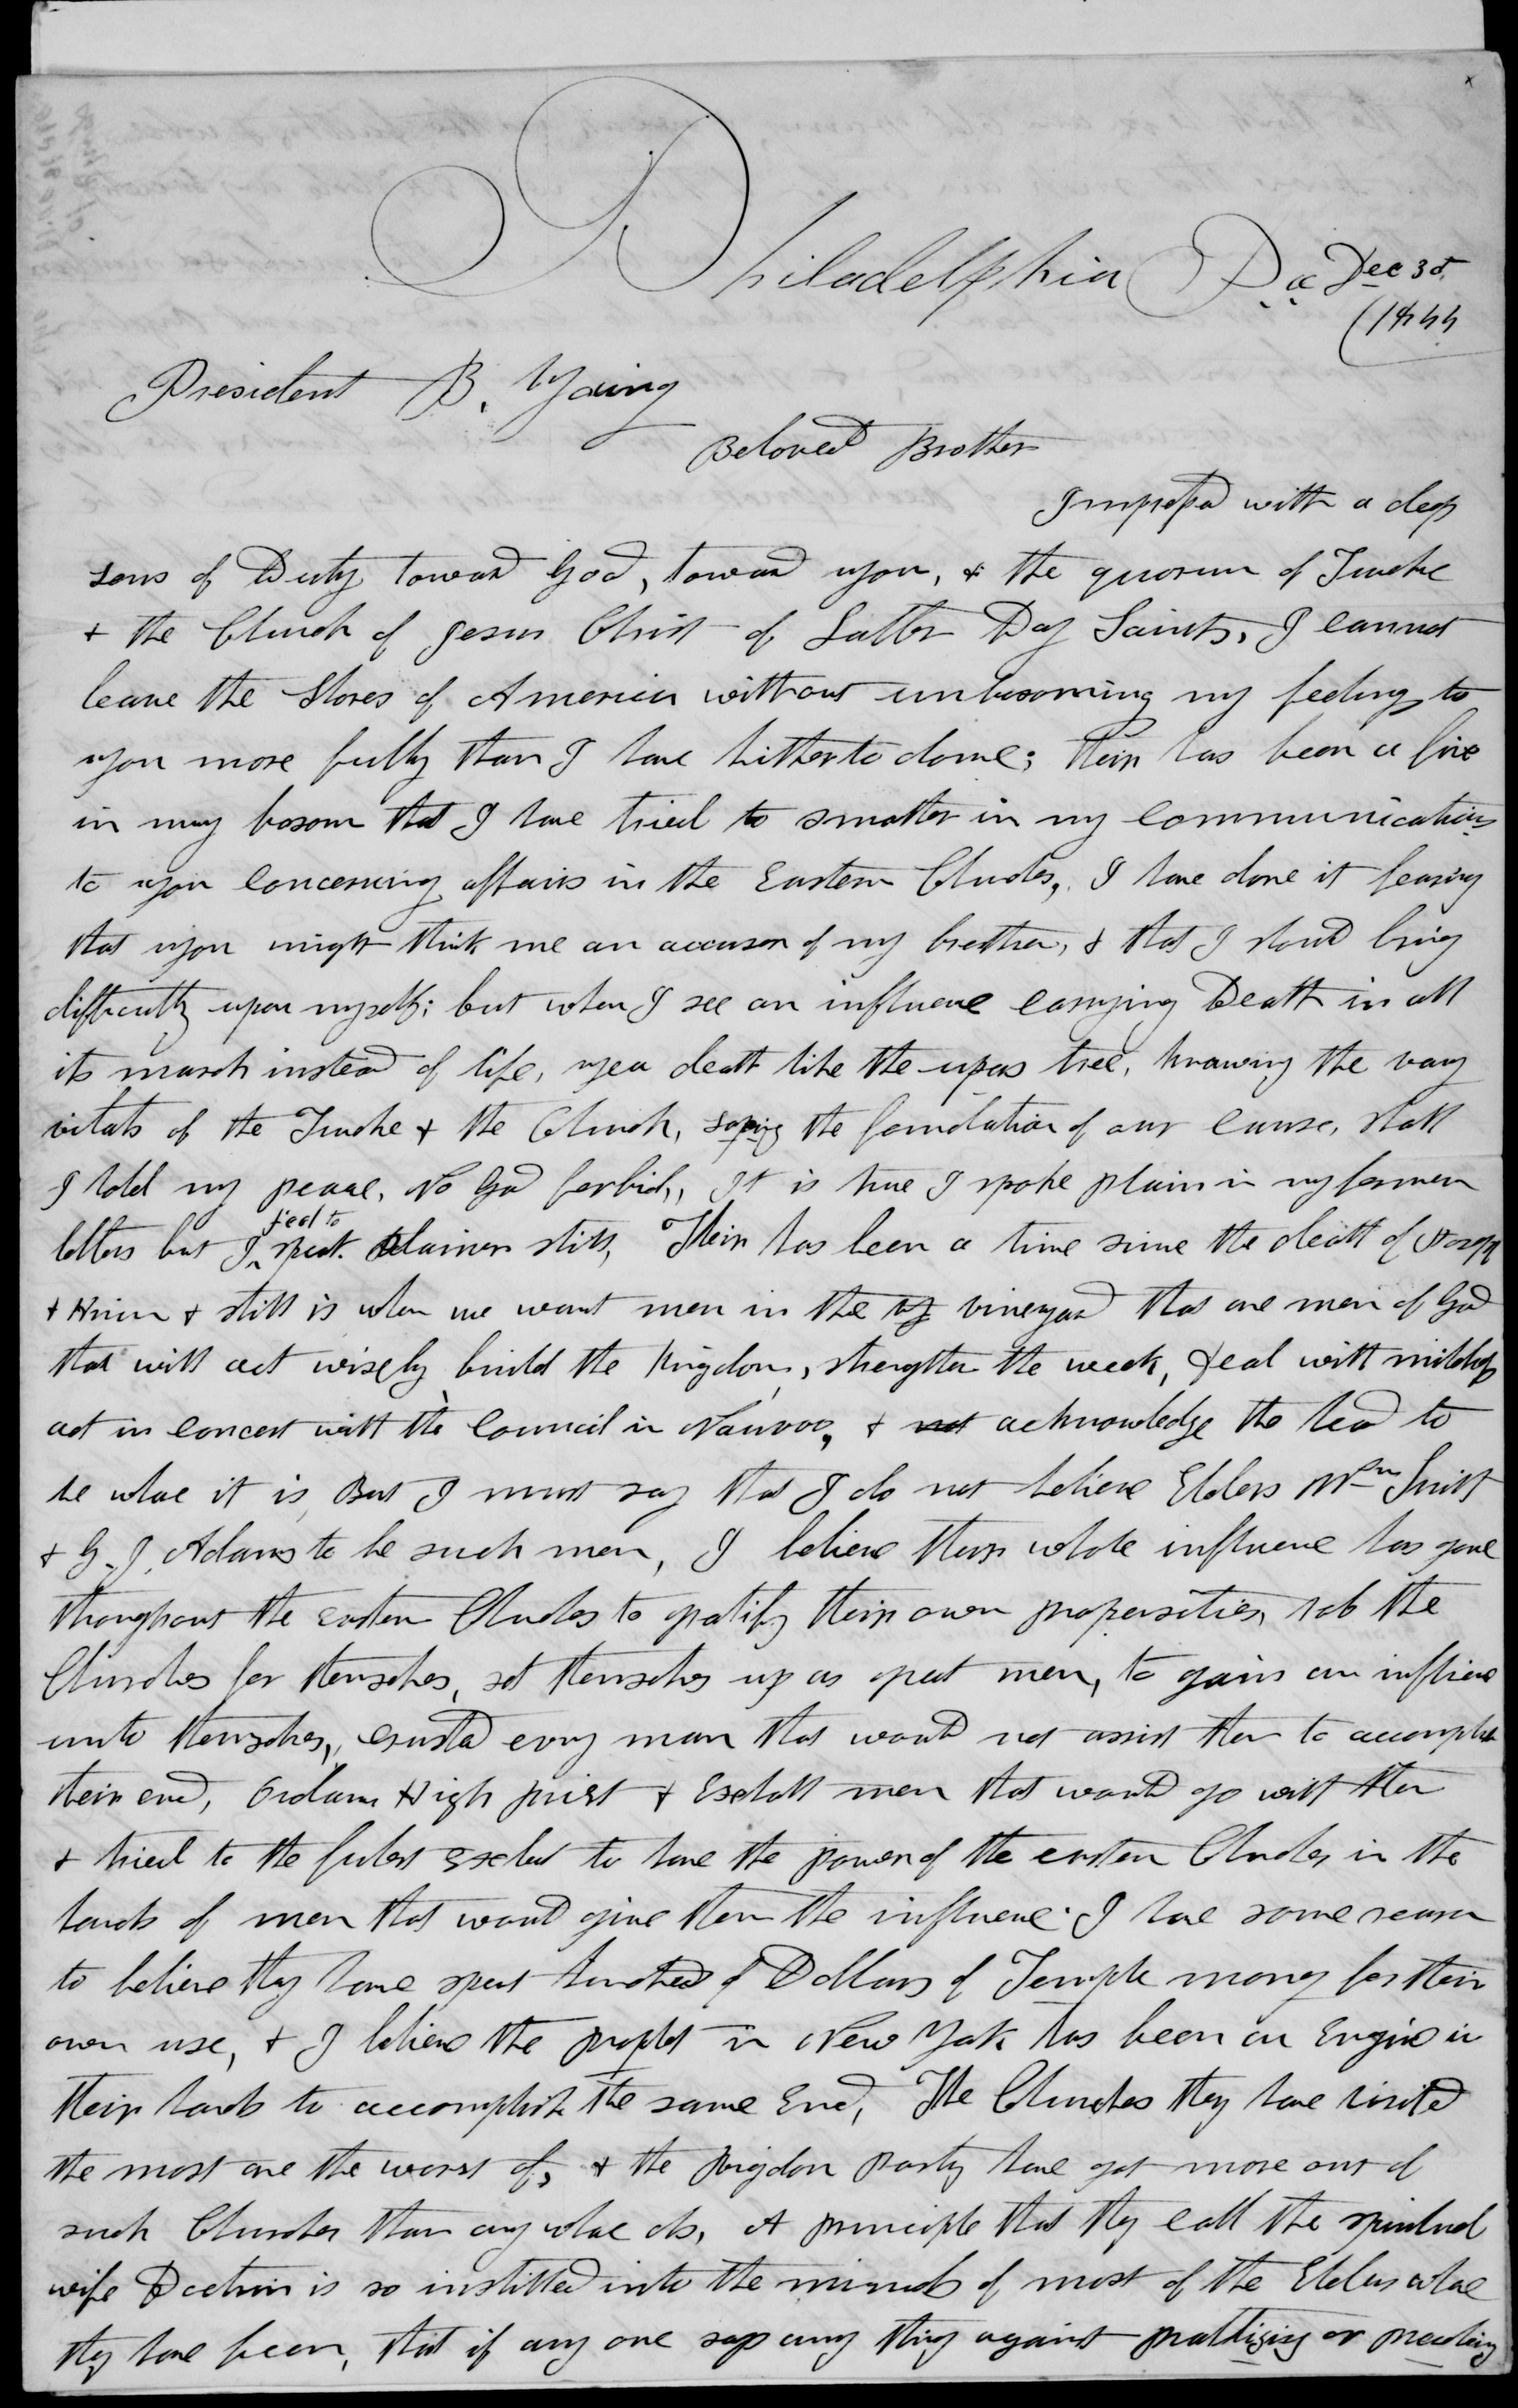 Philadelphia Pa Dec 3d
1844
President B. Young
Beloved Brother
Imprest with a deep
sens of Duty toward God, toward you, & the quorum of Twelve
& the Church of Jesus Christ of Latter Day Saints, I cannot
leave the Shores of America without unbosoming my feelings to
you more fully than I have hitherto done; their has been a fire
in my bosom that I have tried to smother in my communications
to you concerning affairs in the Eastern Churches, I have done it fearing
that you might think me an accuser of my brethren, & that I should bring
difficulty upon myself; but when I see an influence carrying Death in all
its march instead of life, yea death like the upas tree, knawing the vary
vitals of the Twelve & the Church, saping the foundation of our cause, shall
I hold my peace, No God forbid, It is true I spoke plain in my former
letters but I feel to speak plainer still, Their has been a time since the death of Joseph
& Hirum & still is when we want men in the vineyard that are men of God
that will act wisely build the kingdom, strengthen the weak, deal with mildness
act in concert with the Council in Nauvoo, & not acknowledge the head to
be whare it is, But I must say that I do not believe Elders Wm Smith
& G. J. Adams to be such men, I believe their whole influence has gone
throughout the eastern Churches to gratify their own propensities, rob the
Churches for themselves, set themselves up as great men, to gain an influence
unto themselves, crushed evry man that would not assist them to accomplish
their end, Ordain High priest & Exhalt men that would go with them
& tried to the fulest extent to have the power of the eastern Churches in the
hands of men that would give them the influence. I have some reason
to believe they have spent hundreds of Dollars of Temple money for their
own use, & I believe the prophet in New York has been an Engine in
their hands to accomplish the same End, The Churches they have visited
the most are the worst of, & the Rigdon party have got more out of
such Churches than any whare els, A principle that they call the spiritual
wife Doctrin is so instilled into the minds of most of the Elders whare
they have been, that if any one says any thing against practizing or preaching